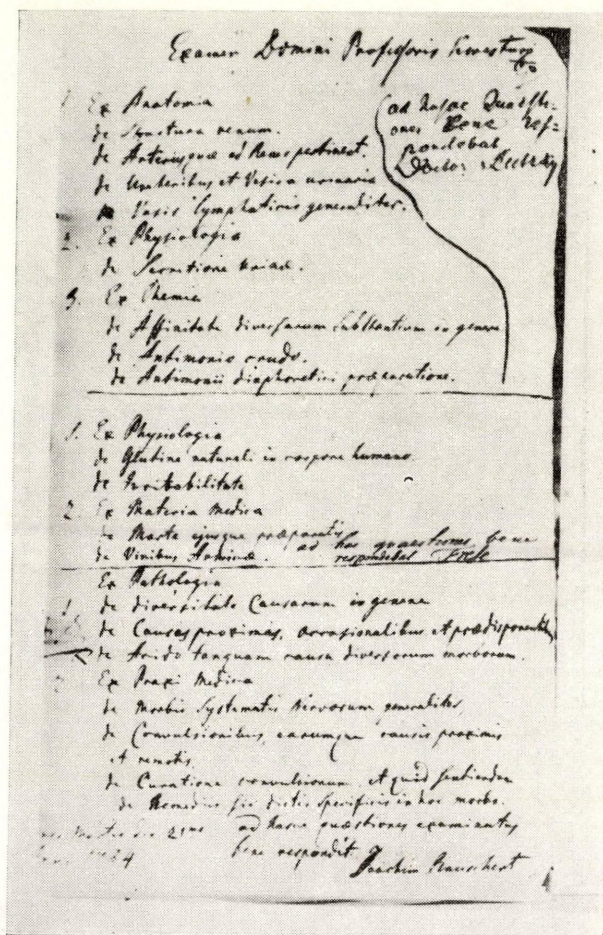 Examen Domini Professoris
1. Ex Anatomia
de Structura renum.
de Arteriisque ad Renes pertinent.
de Uretheribus et Vesica urinaria
Vasis lymphaticis generaliter.
ad hasce Quaesti-
ones bene res-
pondebat
Doctor
2. Ex Physiologia
de Secretione urinae.
3. Ex Chemia
de Affinitate diversarum Substantium in genere
de Antimonio crudo.
de Antimonii diaphoretici praeparatione.
1. Ex Physiologia
de Glutine naturali in corpore humano
de Irritabilitate
2. Ex Materia Medica
de Marte ejusque praeparatis
de Viribus Arnicae. ad has quaestiones bene
respondebat
Ex Pathologia
1. de diversitate Causarum in genere
de Causis proximis, occasionalibus et praedisponentibus
de Acido tanquam causa diversorum morborum.
Ex Praxi Medica
de Morbis Systematis Nervosum generaliter,
de Convulsionibus, earumque causis proximis
et remotis.
de Curatione convulsionum et quid sentiendum
de Remediis sic dictis specificis in hoc morbo.
ad hasce quaestiones examinatus
bene respondit
Joachim Rauschert